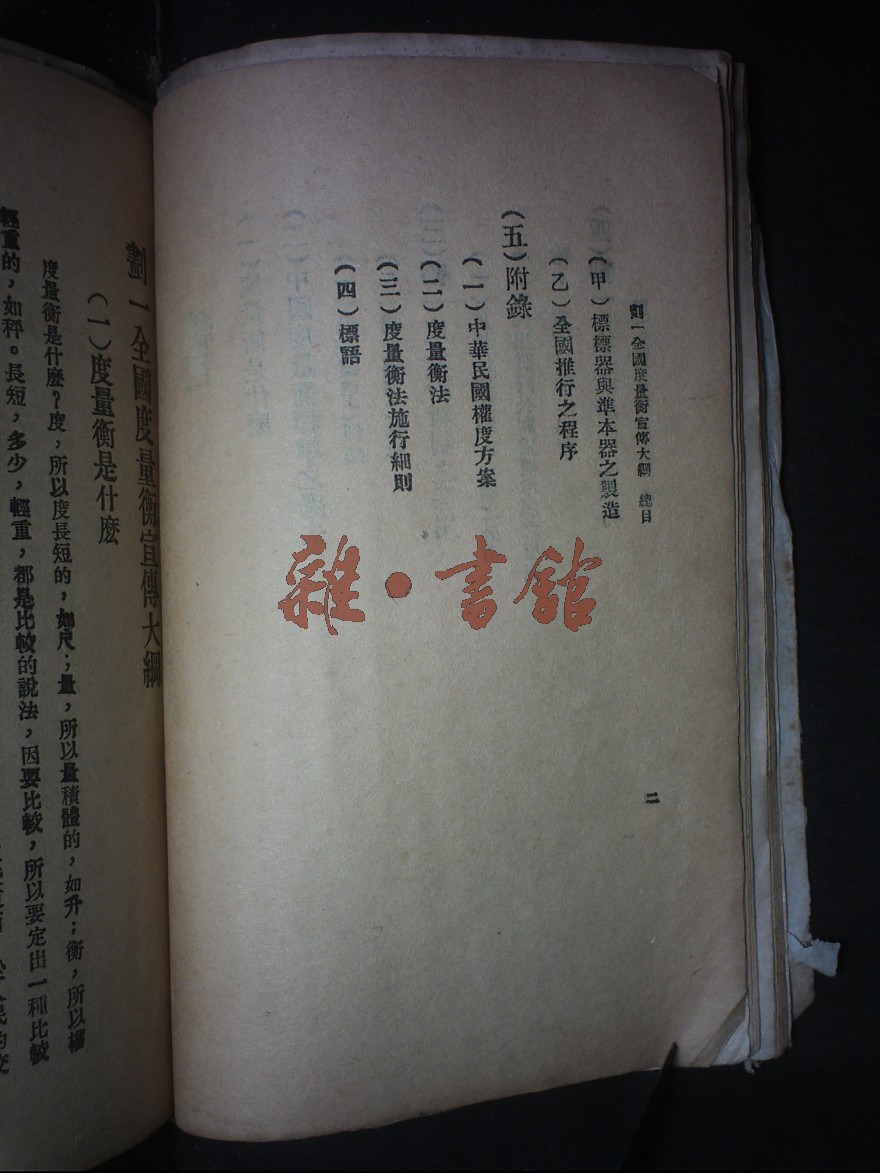 劃一全國度量衡宣傳大綱 總目
(甲)標標器與準本器之製造
(乙)全國推行之程序
(五)附錄
(一)中華民國權度方案
(二)度量衡法
(三)度量衡法施行細則
(四)標語
二
雜·書館
劃一全國度量衡宣傳大綱
(一)度量衡是什麽
度量衡是什麽?度,所以度長短的,如尺;量,所以量積體的,如升;衡,所以權
輕重的,如秤。長短,多少,輕重,都是比較的說法,因要比較,所以要定出一種比較